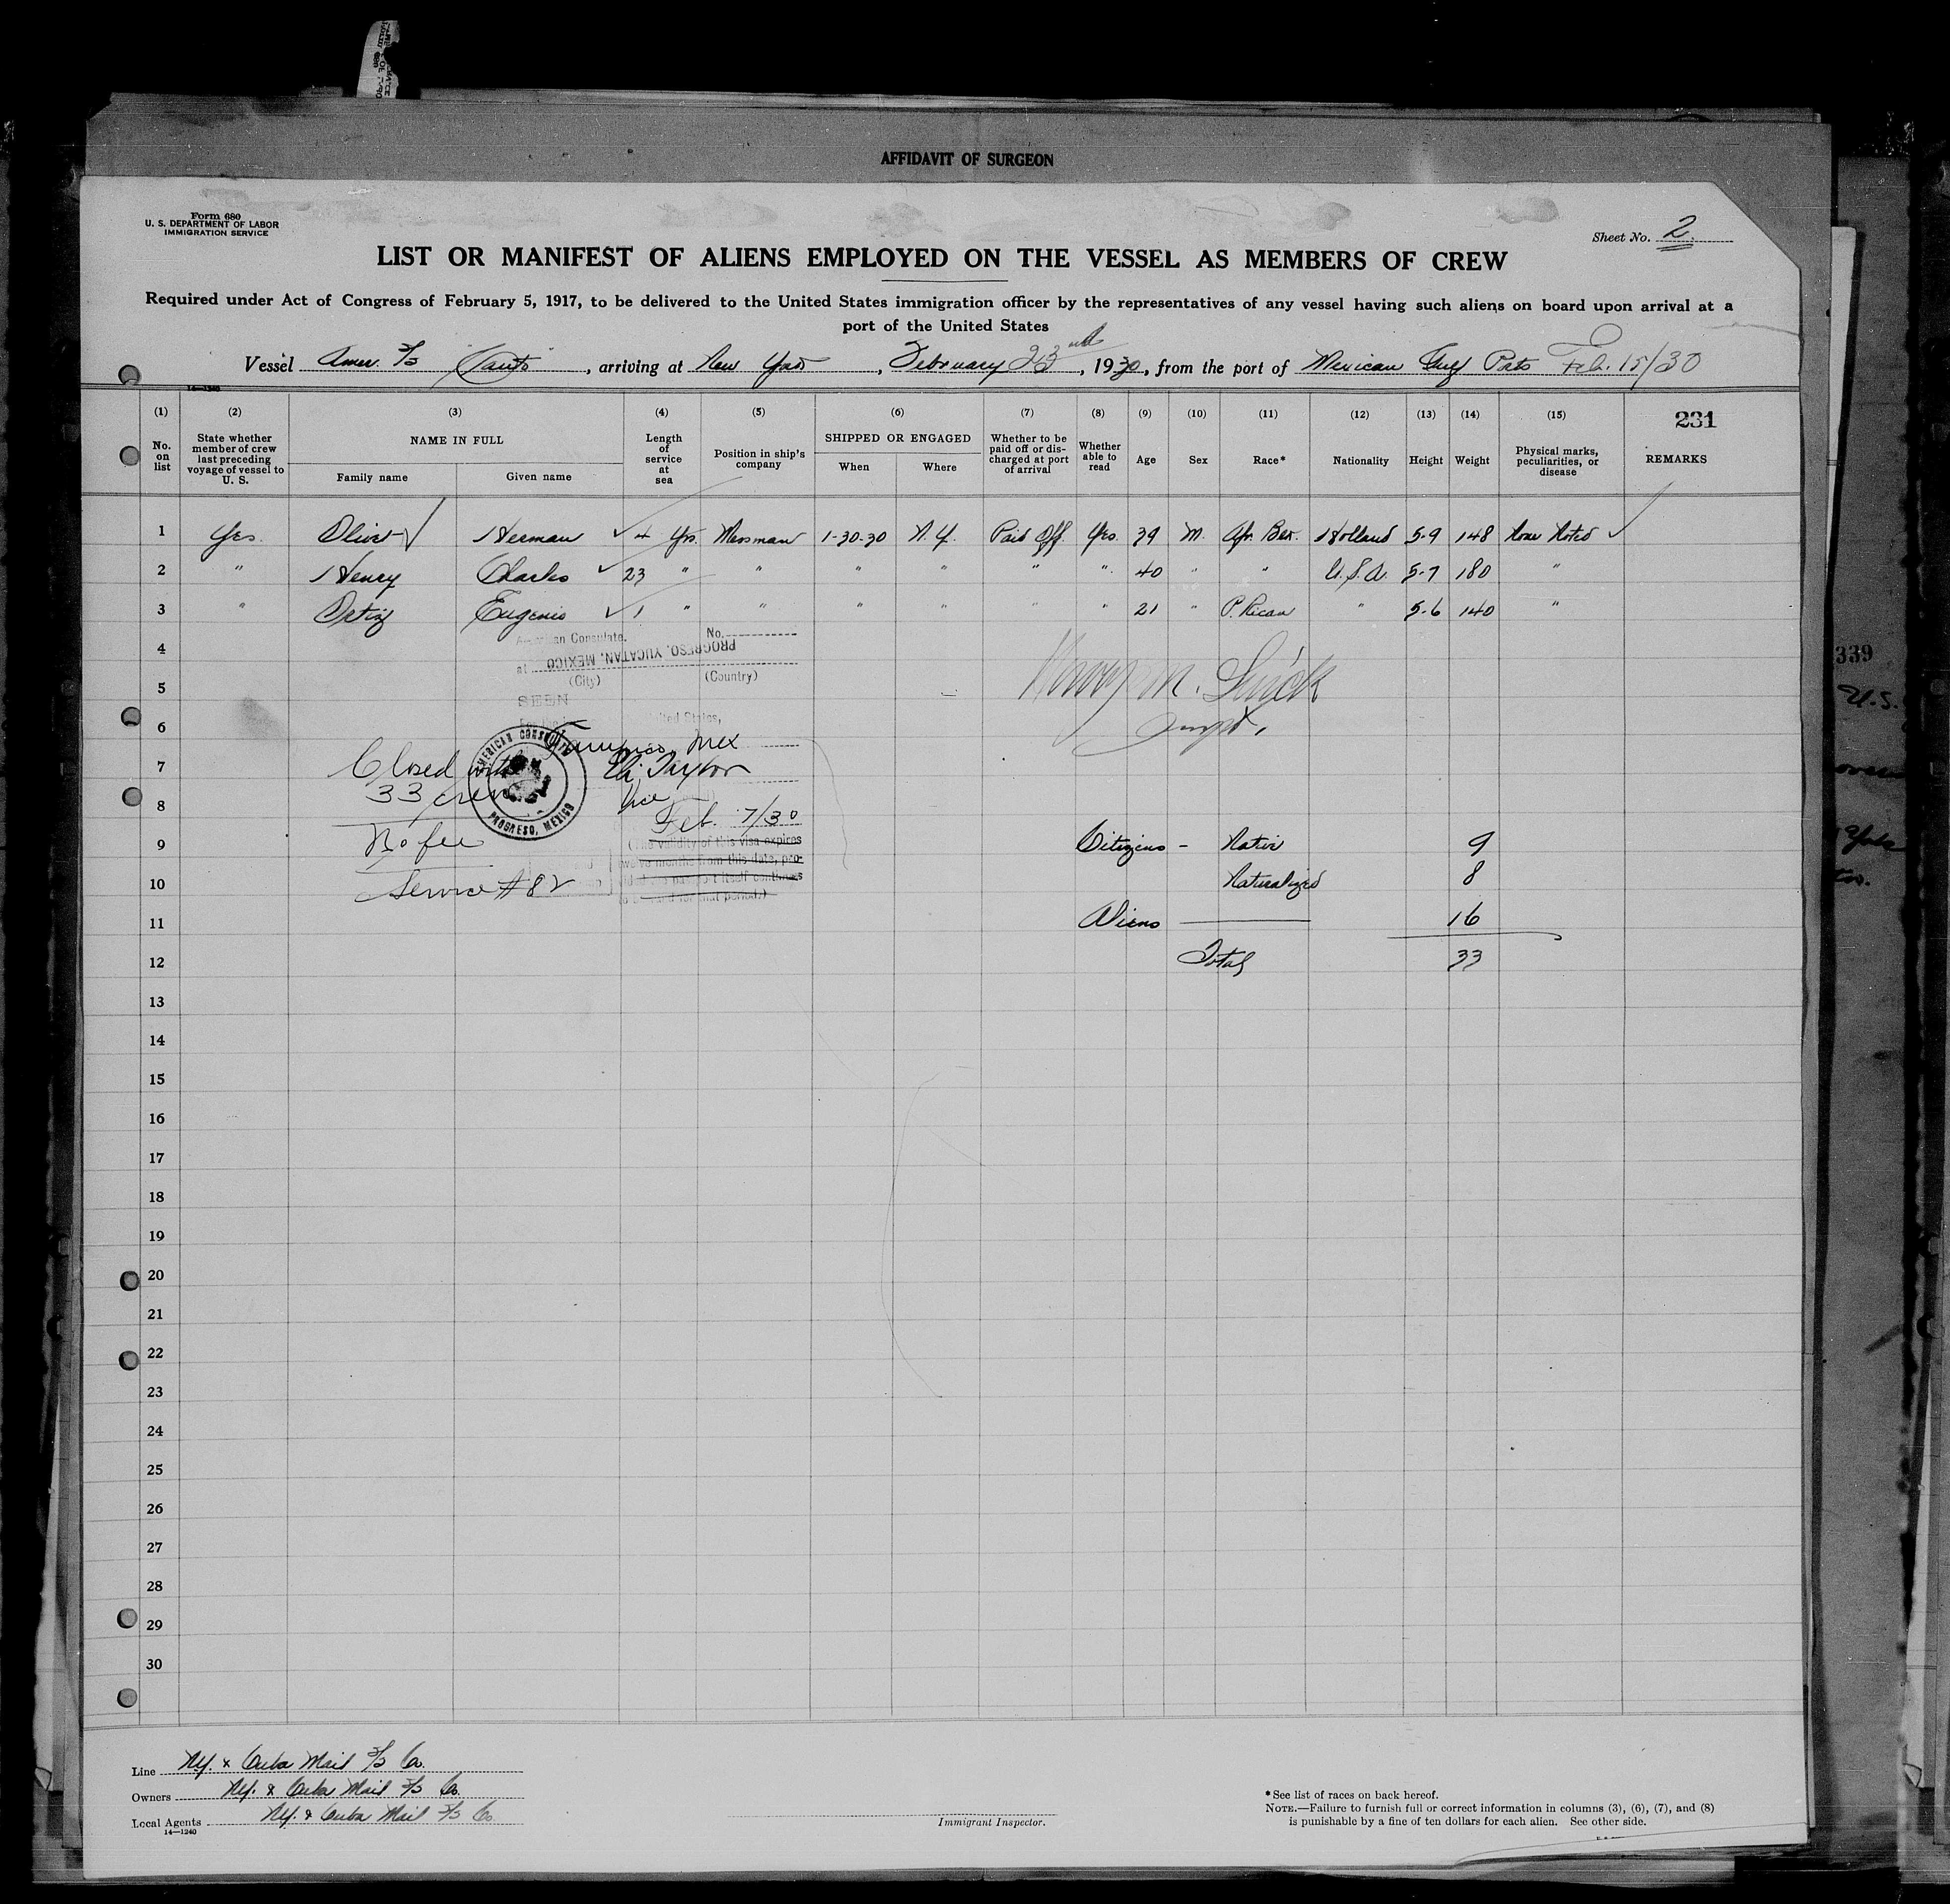 AFFIDAVIT OF SURGEON
Form 680
U. S. DEPARTMENT OF LABOR
IMMIGRATION SERVICE
Sheet No. 2
LIST OR MANIFEST OF ALIENS EMPLOYED ON THE VESSEL AS MEMBERS OF CREW
Required under Act of Congress of February 5, 1917, to be delivered to the United States immigration officer by the representatives of any vessel having such aliens on board upon arrival at a
port of the United States
Vessel Amer. S/S , arriving at New York , February 23rd , 1930, from the port of Mexican Gulf Ports Feb. 15/30
14-1240
(1) (2) (3) (4) (5) (6) (7) (8) (9) (10) (11) (12) (13) (14) (15) 231
No. on list State whether member of crew last preceding voyage of vessel to U. S. NAME IN FULL Family name Given name Length of service at sea Position in ship's company SHIPPED OR ENGAGED When Where Whether to be paid off or discharged at port of arrival Whether able to read Age Sex Race* Nationality Height Weight Physical marks, peculiarities, or disease REMARKS
1 Yes Herman 4 Yrs. Messman 1-30-30 N.Y. Paid Off Yes 39 M. Afr. Holland 5-9 148 None Noted
2 " Henry Charles 23 " " " " " " 40 " " U.S.A. 5-7 180 "
3 " Ortiz Eugenio 1 " " " " " " 21 " P. Rican " 5-6 140 "
American Consulate. No.
4
at PROGRESO, YUCATAN, MEXICO
(City) (Country)
5
SEEN
6
United States,
Mex
AMERICAN CONSULATE PROGRESO, MEXICO
7 Closed with Taylor
33 crew
8 Vice
Feb. 7/30
9 No fee
(The validity of this visa expires
twelve months from this date, pro-
vided the passport itself continues
to be valid for that period.)
10 Service #82
Citizens - Native 9
Naturalized 8
11 Aliens 16
12 Total 33
13
14
15
16
17
18
19
20
21
22
23
24
25
26
27
28
29
30
Line N.Y. & Cuba Mail S/S Co.
Owners N.Y. & Cuba Mail S/S Co.
Local Agents N.Y. & Cuba Mail S/S Co.
14—1240
Immigrant Inspector.
*See list of races on back hereof.
NOTE.—Failure to furnish full or correct information in columns (3), (6), (7), and (8)
is punishable by a fine of ten dollars for each alien. See other side.
339
U.S.